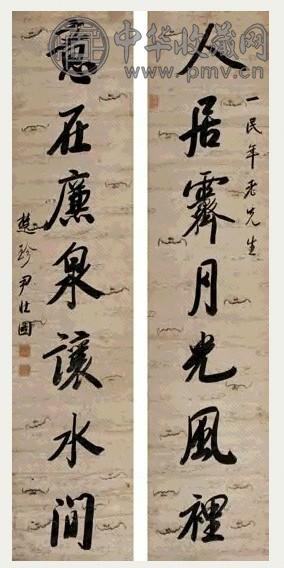 中华收藏网
www.pmv.cn
一民年老兄生
人居霽月光風裡
意在廉泉讓水間
楚珍尹壯圖